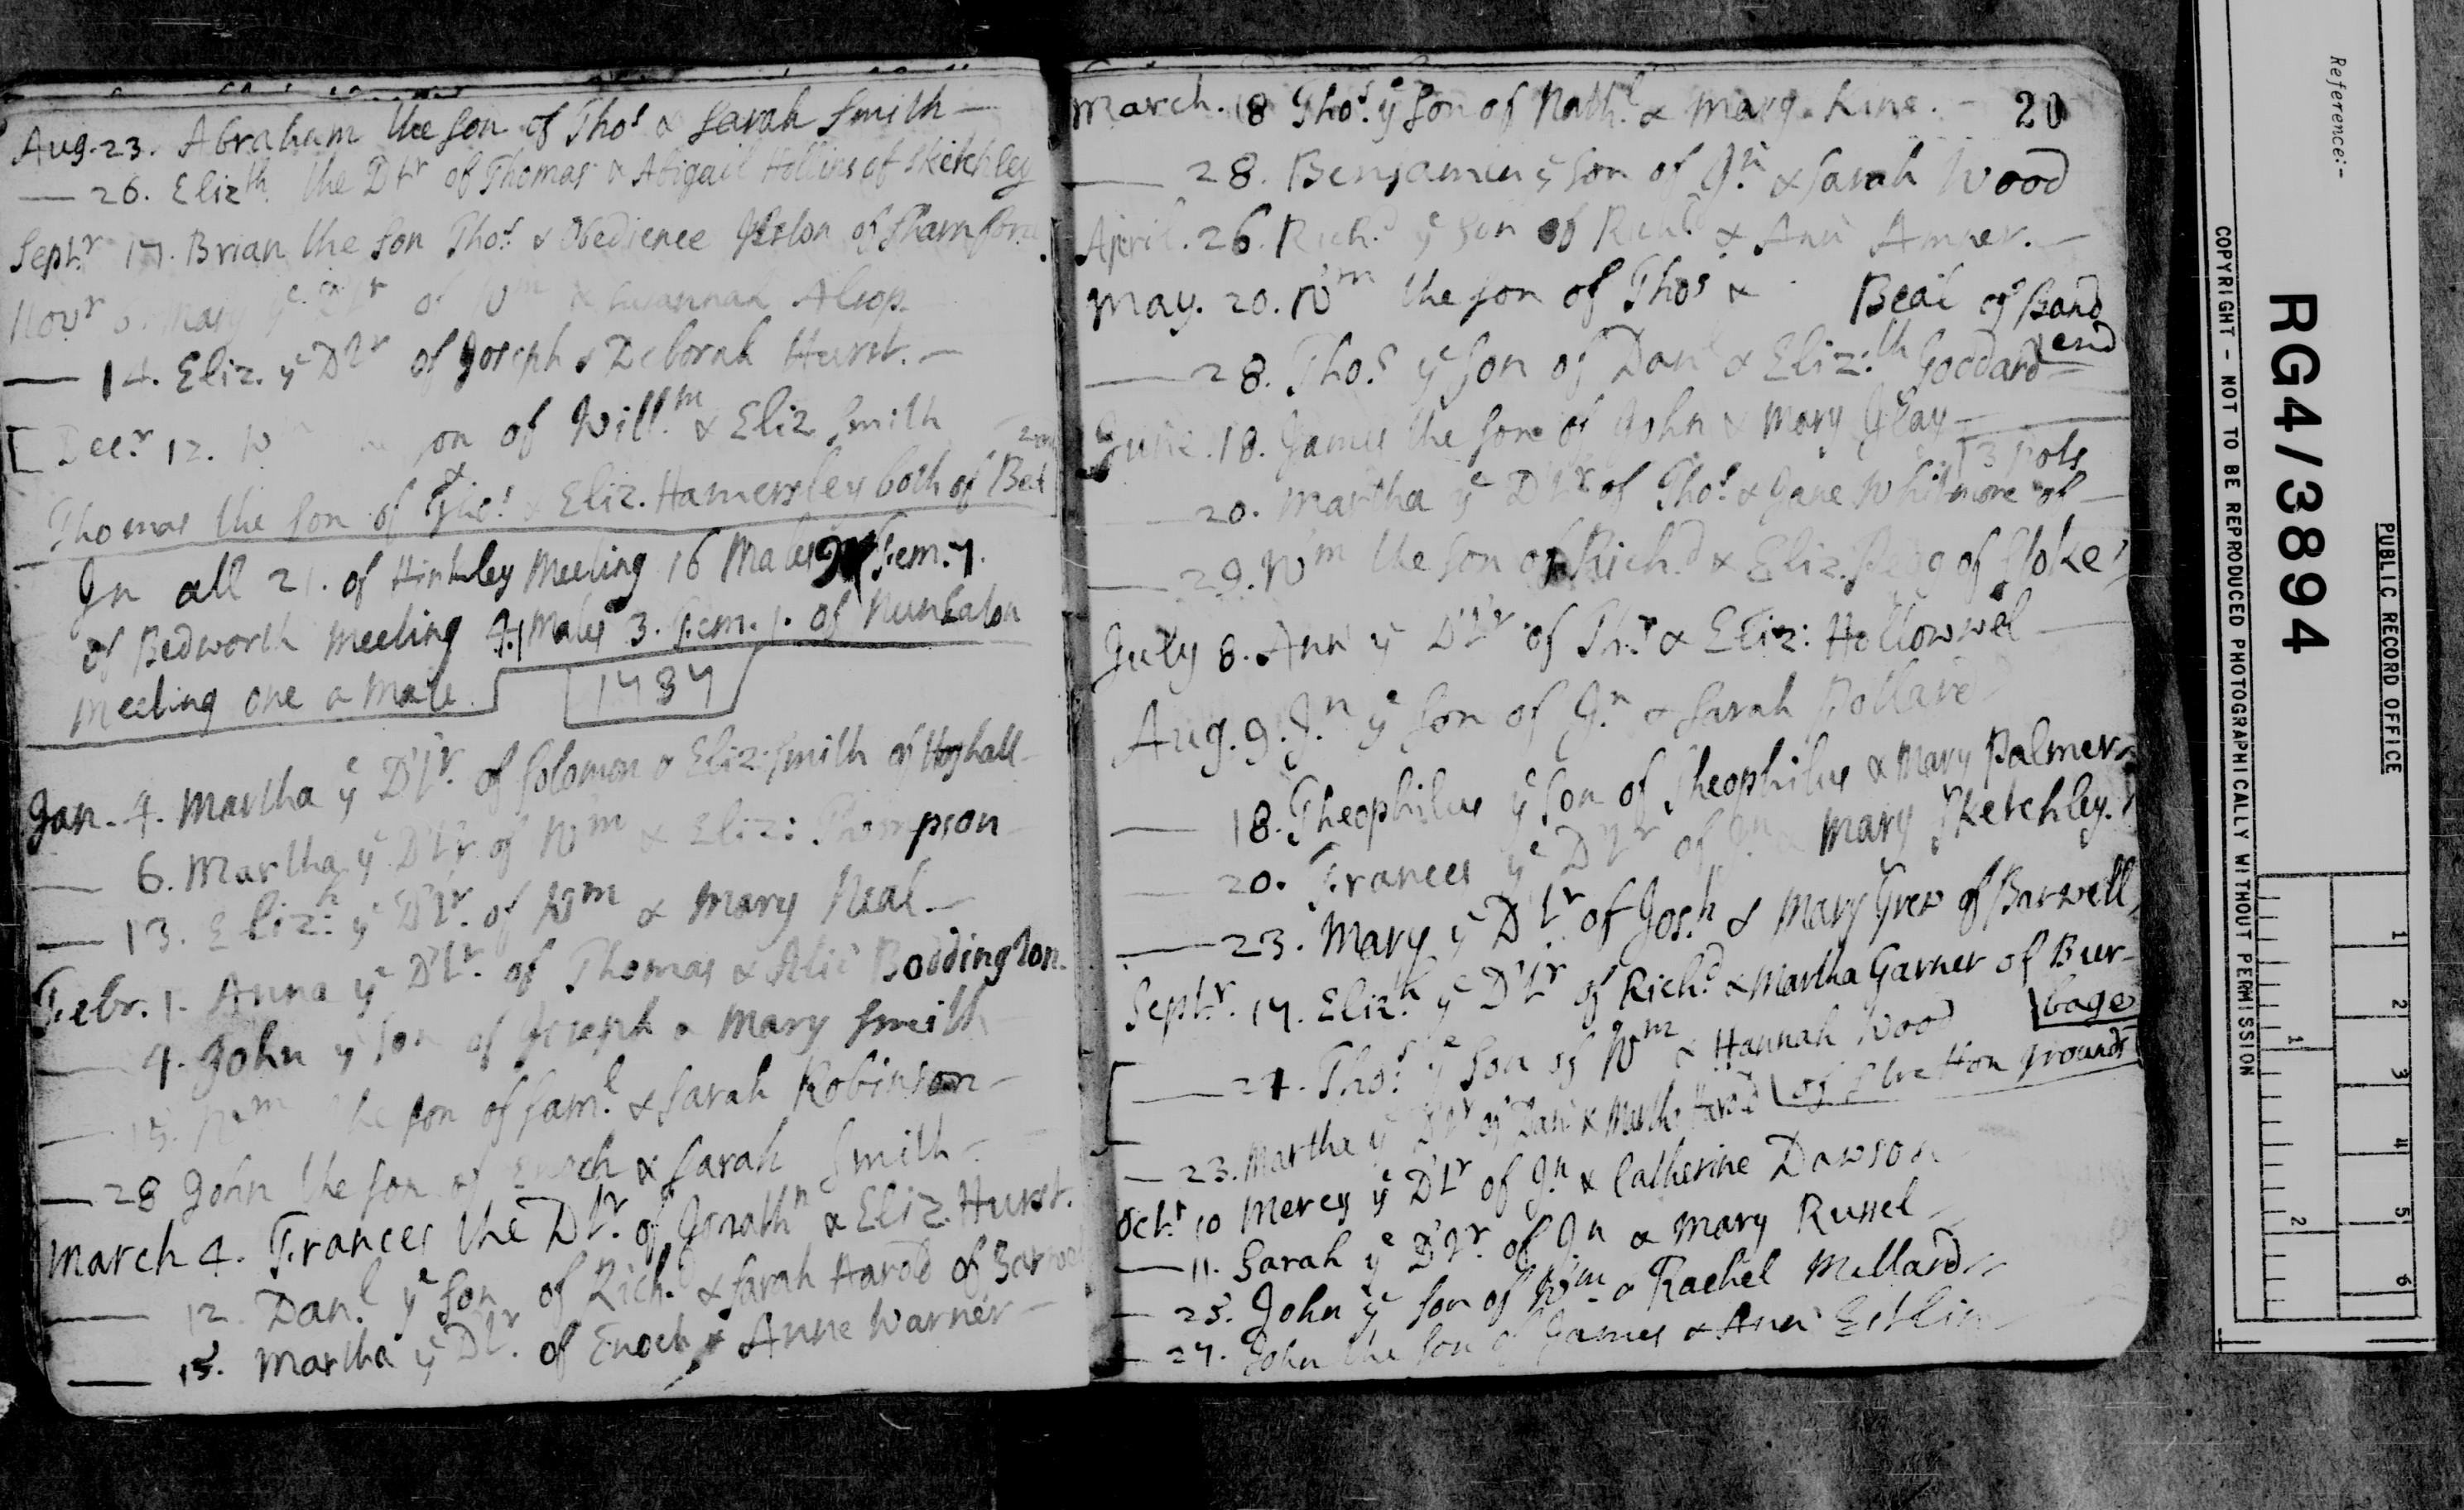 Aug. 23. Abraham the son of Thos. & Sarah Smith
— 26. Elizth. the Dtr of Thomas & Abigail Hollins of Sketchley
Septr 17. Brian the son Thos. & Obedience of Sharnford
Novr Mary ye Dtr of Wm & Susannah Alsop
— 14. Eliz. ye Dtr of Joseph & Deborah Hurst. —
[Decr 12. son of Willm. & Eliz Smith
Thomas the son of Thos. & Eliz. Hamersley both of Bed
In all 21. of Hinkley Meeting 16 Males 9 Fem. 7.
of Bedworth Meeting 4. Males 3. Fem. 1. of Nuneaton
Meeting one a Male.
1737
Jan. 4. Martha ye Dtr. of Solomon & Eliz: Smith of
— 6. Martha ye Dtr of Wm & Eliz: Thompson
— 13. Elizh: ye Dtr. of Wm & Mary Neal. —
Febr. 1. Anna ye Dtr. of Thomas & Boddington.
— 4. John ye son of Joseph & Mary Smith
— 15. Wm the son of Saml. & Sarah Robinson —
— 28 John the son of Enoch & Sarah Smith —
March 4. Frances the Dtr. of Jonathn & Eliz. Hurst.
— 12. Danl. ye son of Richd. & Sarah Harold of Barwel
— 15. Martha ye Dtr. of Enoch & Anne Warner —
March. 18 Thos. ye son of Nathl. & Mary King. — 20
— 28. Benjamin ye son of Jn. & Sarah Wood
April. 26. Richd. ye son of Richd & Ann Amner. —
May. 20. Wm the son of Thos & Beal of Bond
end
— 28. Thos. ye son of Danl & Eliz:th Goddard —
June. 18. James the son of John & Mary —
3 Pots
— 20. Martha ye Dtr of Thos. & Jane Whitmore of —
— 29. Wm the son of Richd. & Eliz. Pegg of Stoke
July 8. Ann ye Dtr of Thos. & Eliz: Hollowwel
Aug. 9. Jn. ye son of Jn. & Sarah Pollard
— 18. Theophilus ye son of Theophilus & Mary Palmer
— 20. Frances ye Dtr of Jn & Mary Sketchley.
— 23. Mary ye Dtr of Josh. & Mary Grew of Barwell
Septr. 17. Elizh. ye Dtr of Richd. & Martha Garner of Bur-
bage
[ — 21. Thos. ye son of Wm & Hannah Wood
of Stretton grounds
— 23. Martha ye Dtr of Danl & Martha Harold
Octr. 10 Mercy ye Dtr of Jn. & Catherine Dawson
— 11. Sarah ye Dtr. of Jn & Mary Russel
— 25. John ye son of Wm. & Rachel Millard
— 27. John the son of James & Ann Estlin
Reference:-
RG4/3894
PUBLIC RECORD OFFICE
COPYRIGHT - NOT TO BE REPRODUCED PHOTOGRAPHICALLY WITHOUT PERMISSION
1 2 3 4 5 6
1 2